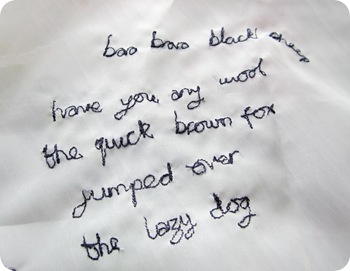 baa baa black sheep
have you any wool
the quick brown fox
jumped over
the lazy dog